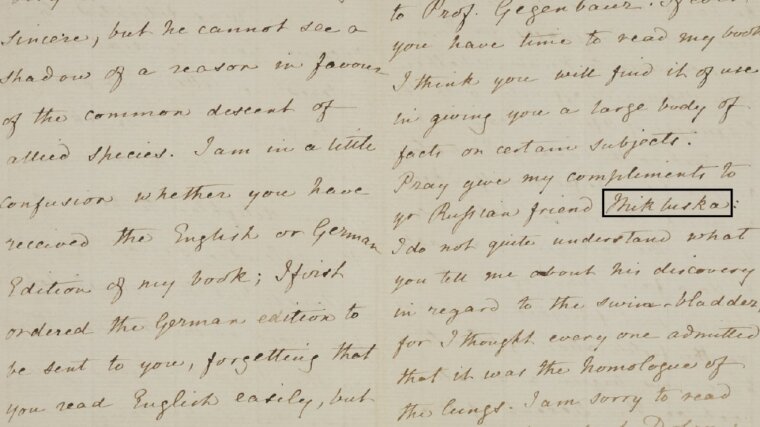 sincere, but he cannot see a
shadow of a reason in favour
of the common descent of
allied species. I am in a little
confusion whether you have
received the English or German
Edition of my book; I first
ordered the German edition to
be sent to you, forgetting that
you read English easily, but
to Prof. Gegenbaur. If ever
you have time to read my book
I think you will find it of use
in giving you a large body of
facts on certain subjects.
Pray give my compliments to
yr Russian friend Mikluska:
I do not quite understand what
you tell me about his discovery
in regard to the swim-bladder,
for I thought every one admitted
that it was the homologue of
the lungs. I am sorry to read